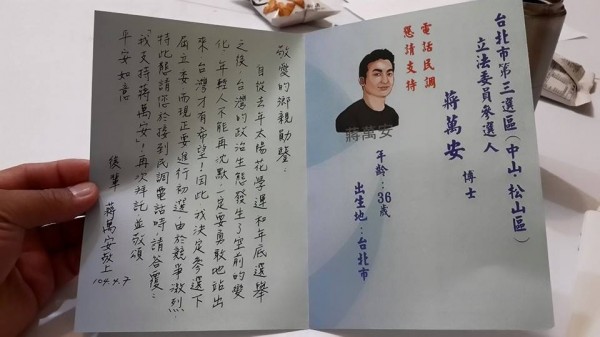 台北市第三選區（中山、松山區）
立法委員參選人
蔣萬安 博士
電話民調
懇請支持
蔣萬安
年齡：36歲
出生地：台北市
敬愛的鄉親勛鑒：
自從去年太陽花學運和年底選舉
之後，台灣的政治生態發生了空前的變
化，年輕人不能再沈默，一定要勇敢地站出
來，台灣才有希望！因此，我決定參選下
屆立委，而現正要進行初選，由於競爭激烈，
特此懇請您於接到民調電話時，請答覆：
「我支持蔣萬安」！再次拜託，並敬頌
平安如意
後輩 蔣萬安敬上
104.4.7